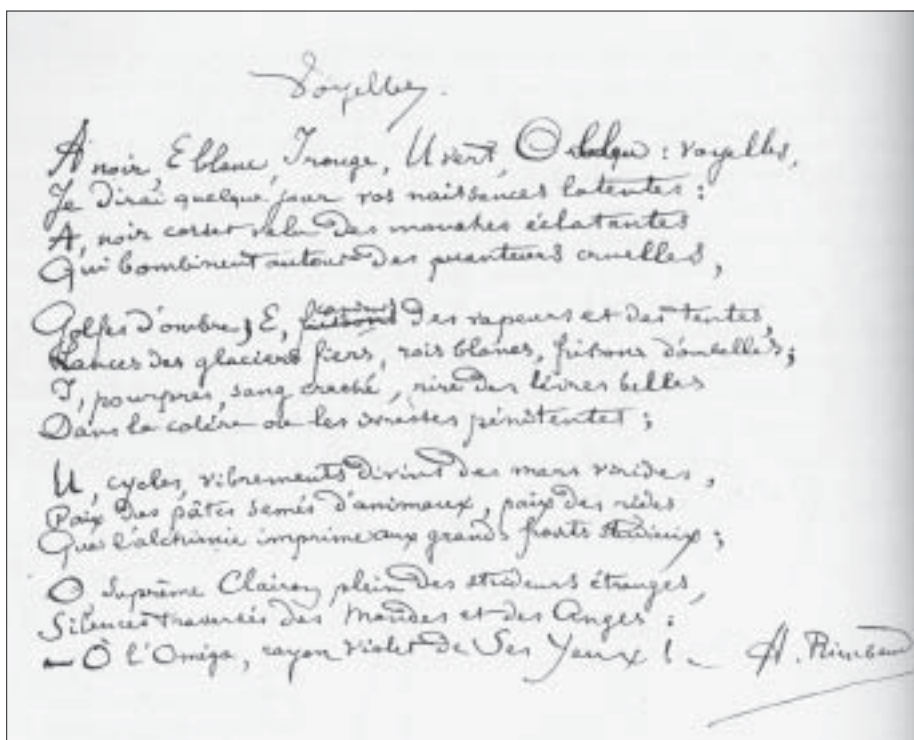 Voyelles.
A noir, E blanc, I rouge, U vert, O bleu : voyelles,
Je dirai quelque jour vos naissances latentes :
A, noir corset velu des mouches éclatantes
Qui bombinent autour des puanteurs cruelles,
Golfes d'ombre ; E, frissons candeurs des vapeurs et des tentes,
Lances des glaciers fiers, rois blancs, frissons d'ombelles ;
I, pourpres, sang craché, rire des lèvres belles
Dans la colère ou les ivresses pénitentes ;
U, cycles, vibrements divins des mers virides,
Paix des pâtis semés d'animaux, paix des rides
Que l'alchimie imprime aux grands fronts studieux ;
O Suprême Clairon plein des strideurs étranges,
Silences traversés des Mondes et des Anges :
— Ô l'Oméga, rayon violet de Ses Yeux ! —
A. Rimbaud